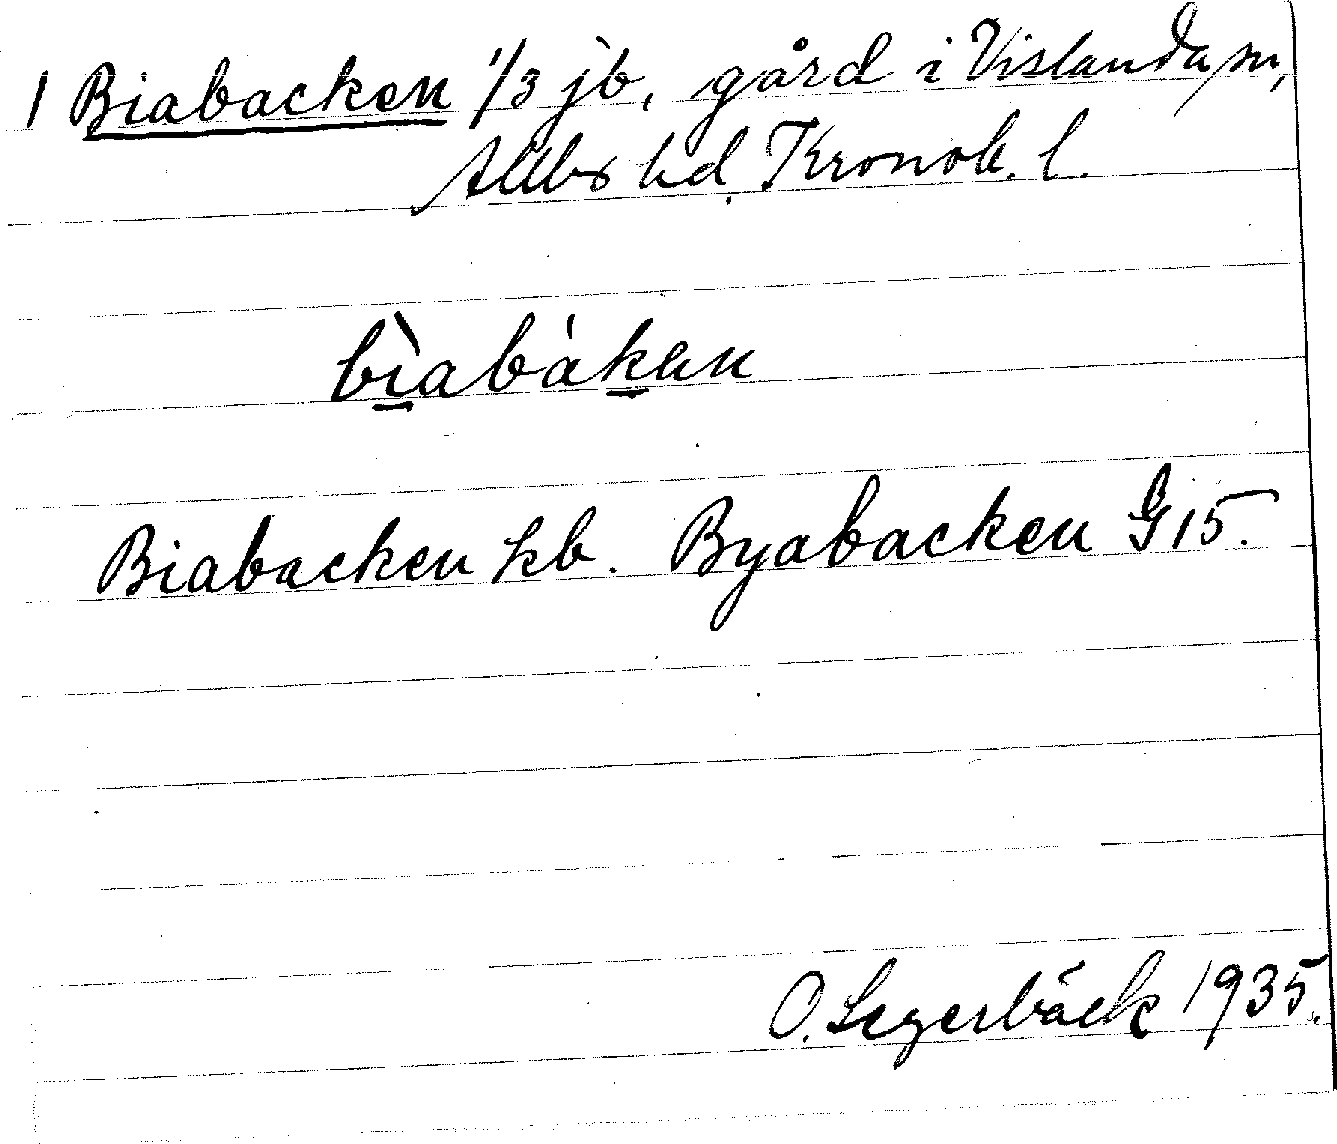 1 Biabacken 1/3 jb, gård i Vislanda sn,
Allbo hd, Kronob. l.
bìabàken
Biabacken hb. Byabacken G 15.
O. Segerbäck 1935.